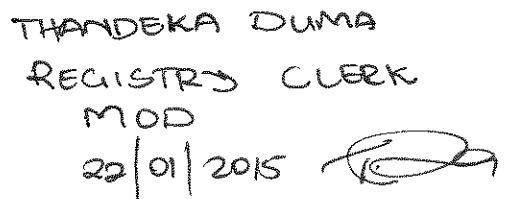 THANDEKA DUMA
REGISTRY CLERK
MOD
22/01/2015